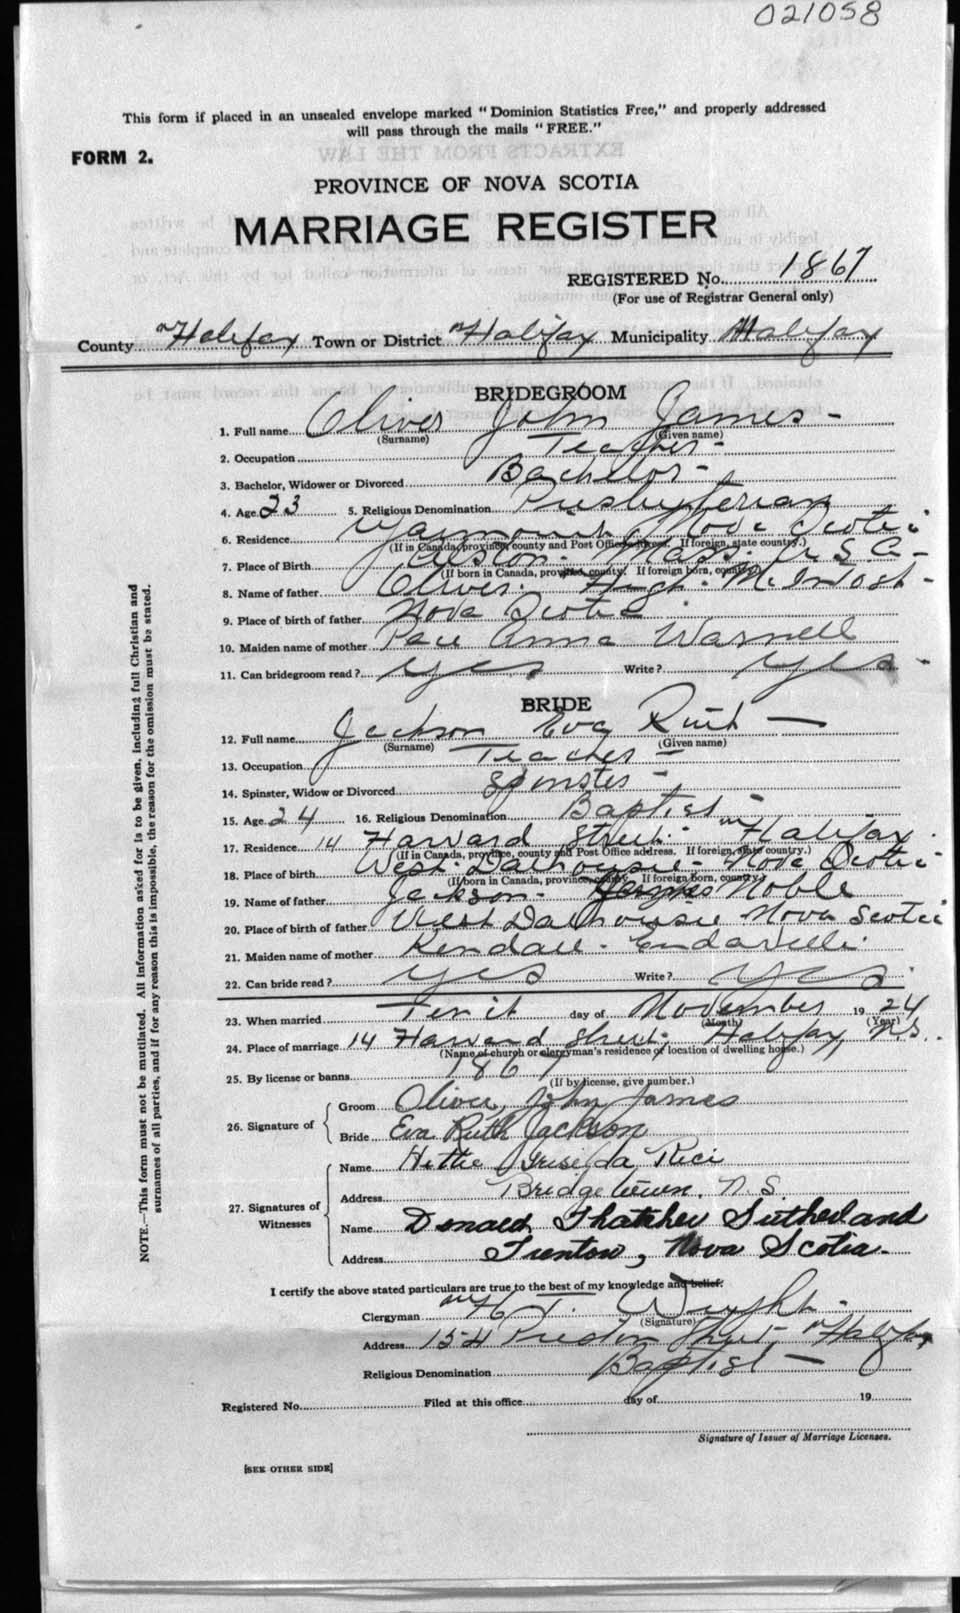 021058
This form if placed in an unsealed envelope marked "Dominion Statistics Free," and properly addressed
will pass through the mails "FREE."
FORM 2.
PROVINCE OF NOVA SCOTIA
MARRIAGE REGISTER
REGISTERED No. 1867
(For use of Registrar General only)
County Halifax Town or District Halifax Municipality Halifax
BRIDEGROOM
1. Full name Oliver John James -
(Surname) (Given name)
2. Occupation Teacher -
3. Bachelor, Widower or Divorced Bachelor -
4. Age 23 5. Religious Denomination Presbyterian
6. Residence Yarmouth Nova Scotia
(If in Canada, province, county and Post Office address. If foreign, state country.)
7. Place of Birth Mass. U.S.A -
(If born in Canada, province, county. If foreign born, country.)
8. Name of father Oliver. Hugh McIntosh -
9. Place of birth of father Nova Scotia
10. Maiden name of mother Anna Warnell
11. Can bridegroom read? yes Write? yes -
BRIDE
12. Full name Jackson Eva Ruth -
(Surname) (Given name)
13. Occupation Teacher -
14. Spinster, Widow or Divorced Spinster -
15. Age 24 16. Religious Denomination Baptist -
17. Residence 14 Harvard Street. Halifax.
(If in Canada, province, county and Post Office address. If foreign, state country.)
18. Place of birth West Dalhousie - Nova Scotia -
(If born in Canada, province, county. If foreign born, country.)
19. Name of father Jackson - Noble
20. Place of birth of father West Dalhousie Nova Scotia
21. Maiden name of mother Kendall -
22. Can bride read? yes Write? yes.
23. When married Tenth day of November 1924
(Month) (Year)
24. Place of marriage 14 Harvard Street, Halifax, N.S.
(Name of church or clergyman's residence or location of dwelling house.)
25. By license or banns 1867
(If by license, give number.)
26. Signature of
Groom Oliver, John James
Bride Eva Ruth Jackson
27. Signatures of Witnesses
Name Hettie Griselda Rice
Address Bridgetown, N.S.
Name Donald Thatcher Sutherland
Address Trenton, Nova Scotia.
I certify the above stated particulars are true to the best of my knowledge and belief.
Clergyman Wright -
(Signature)
Address 154 Preston Street, Halifax
Religious Denomination Baptist -
Registered No. Filed at this office day of 19
Signature of Issuer of Marriage Licenses.
[SEE OTHER SIDE]
NOTE.—This form must not be mutilated. All information asked for is to be given, including full Christian and
surnames of all parties, and if for any reason this is impossible, the reason for the omission must be stated.